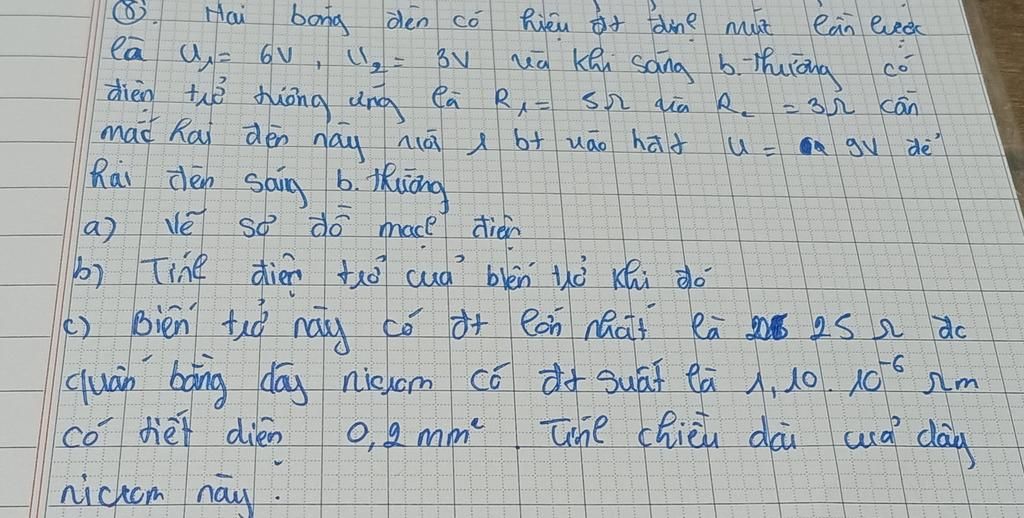 ⑧. Hai bóng đèn có hiệu đt định mức lần lượt
là U₁ = 6V, U₂ = 3V và khi sáng b.thường có
điện trở tương ứng là R₁ = 5Ω và R₂ = 3Ω cần
mắc hai đèn này với 1 bt vào hđt U = 9V để
hai đèn sáng b.thường
a) Vẽ sơ đồ mạch điện
b) Tính điện trở của biến trở khi đó
c) Biến trở này có đt lớn nhất là 25 Ω đc
quấn bằng dây nicrom có đt suất là 1,10.10⁻⁶ Ωm
có tiết diện 0,2 mm². Tính chiều dài của dây
nicrom này.